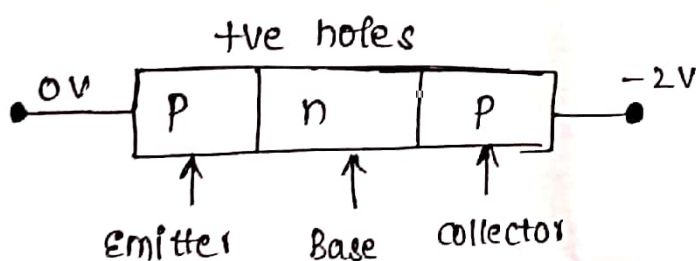 +ve holes
0V P n P -2V
Emitter Base collector